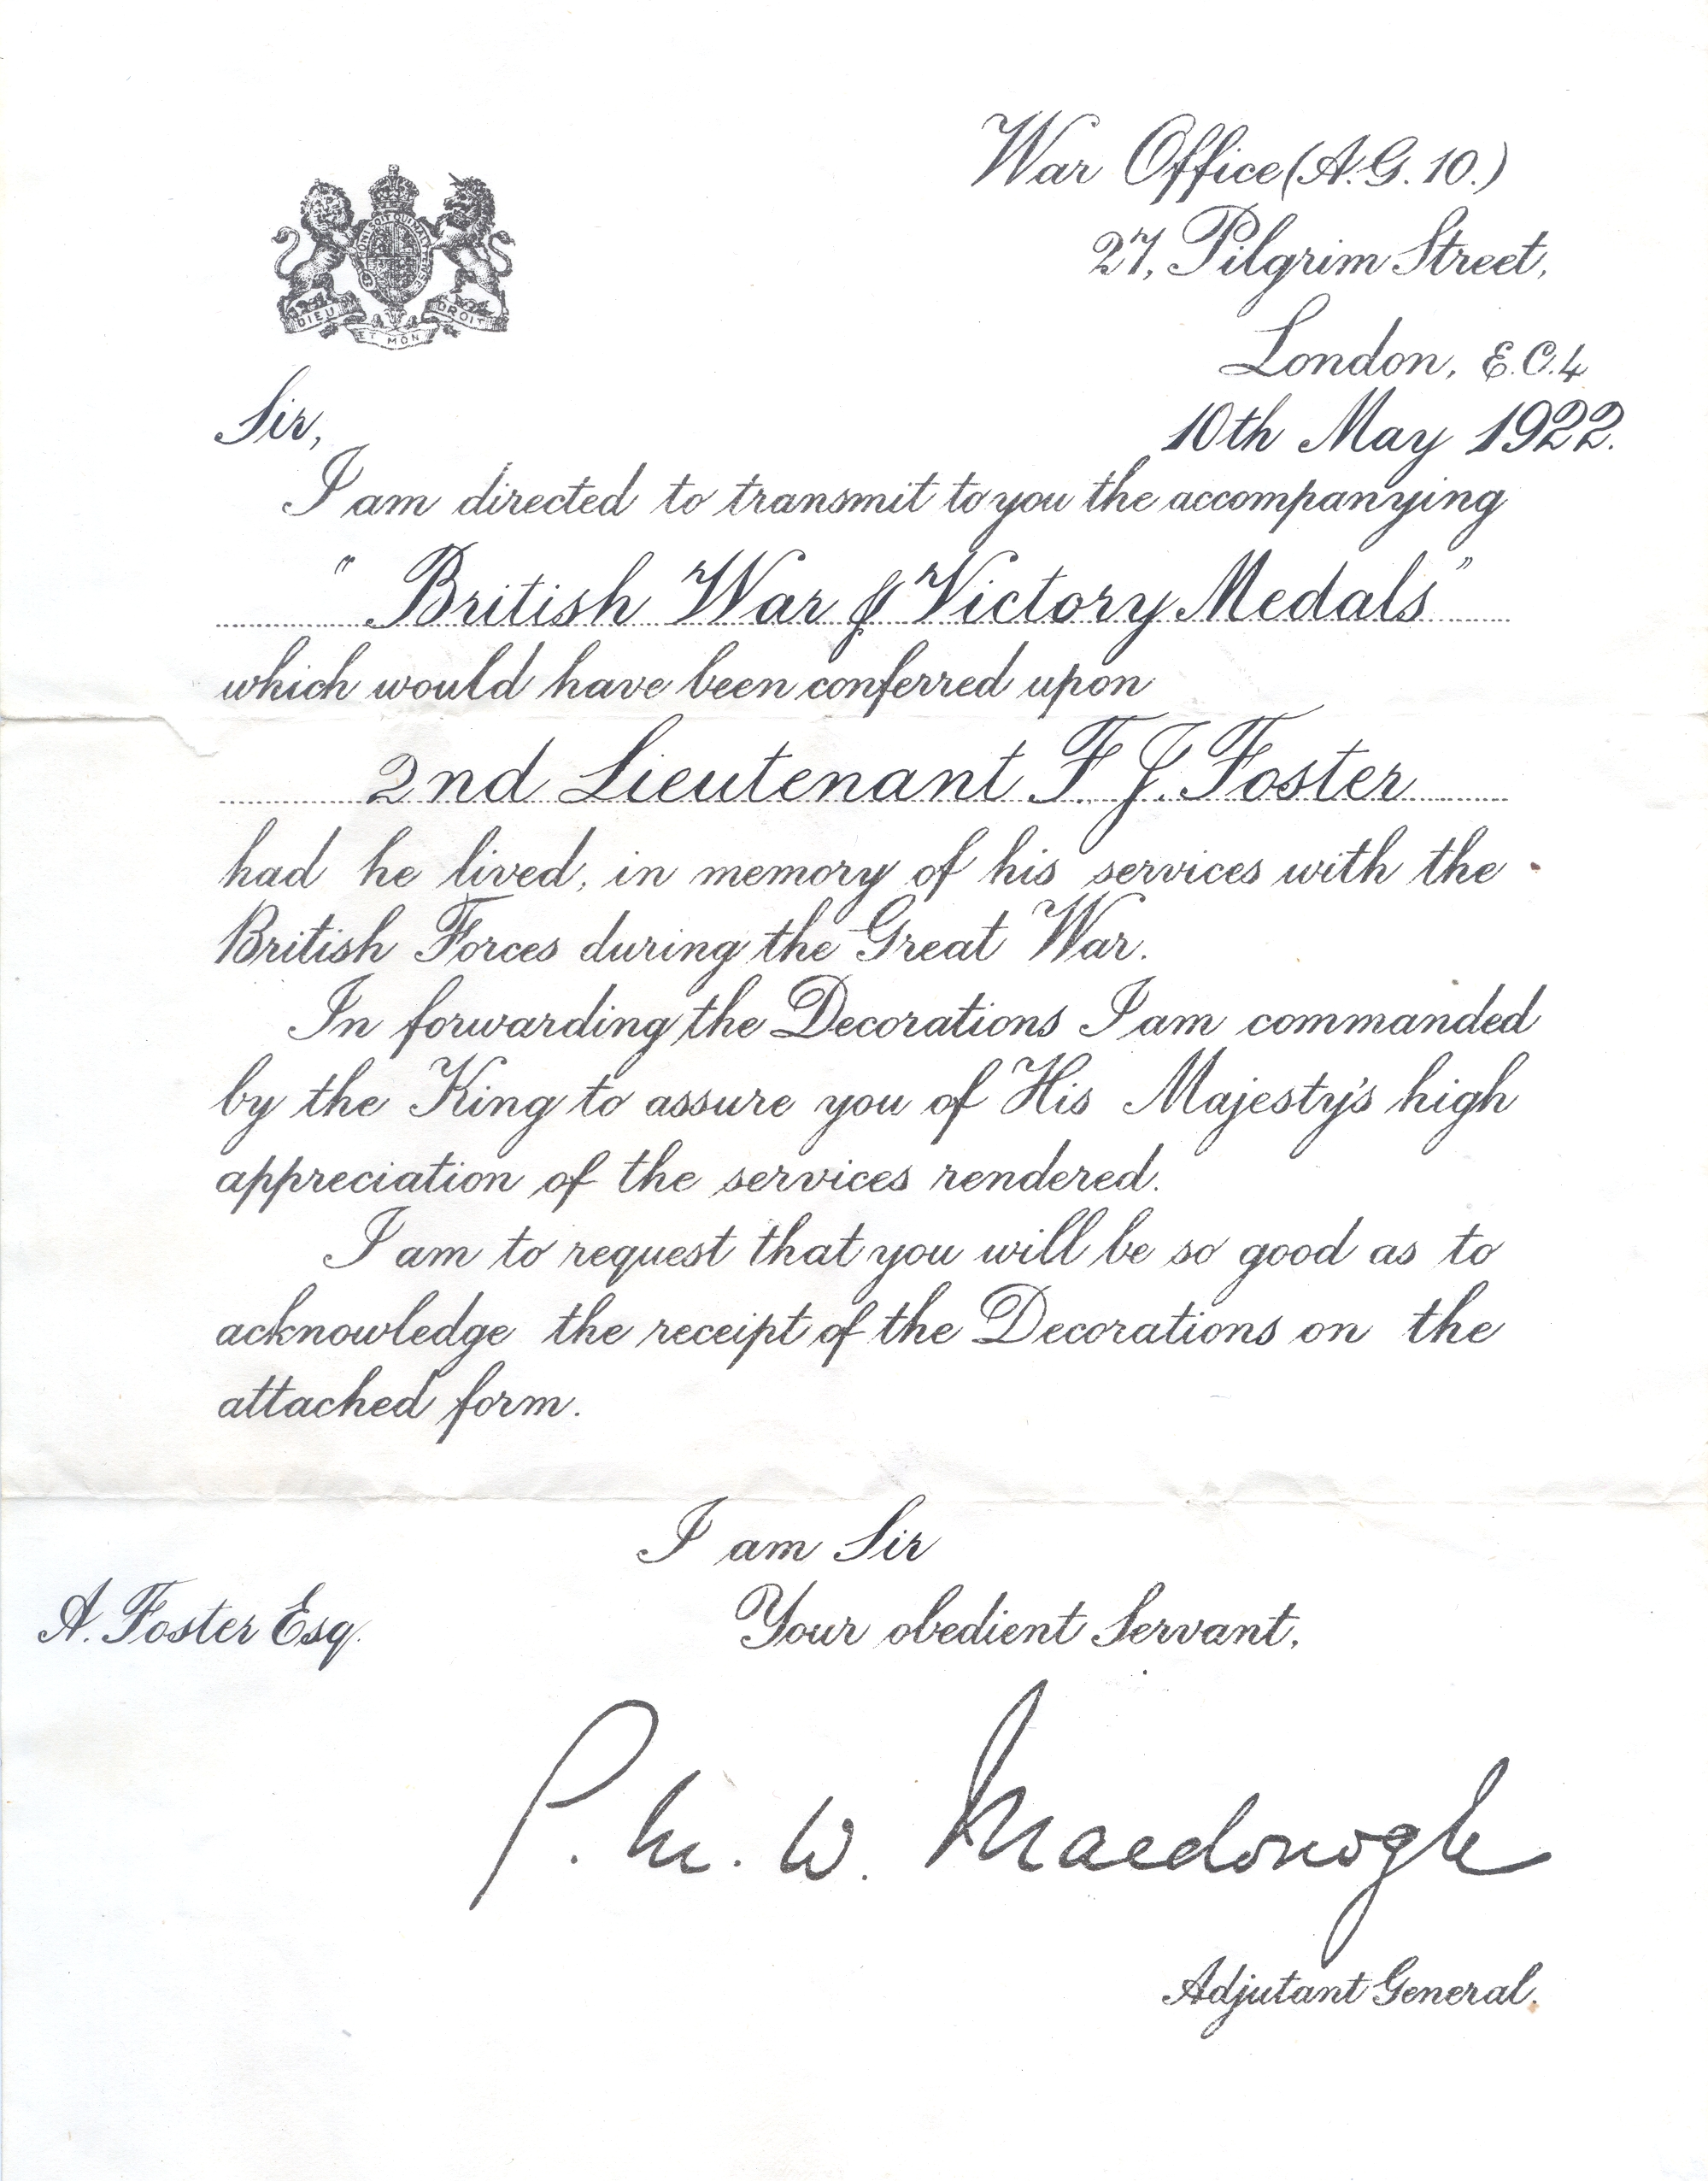 War Office (A.G. 10.)
27, Pilgrim Street,
London, E.C.4
10th May 1922.
HONI SOIT QUI MAL Y PENSE
DIEU ET MON DROIT
Sir,
I am directed to transmit to you the accompanying
"British War & Victory Medals"
which would have been conferred upon
2nd Lieutenant F. J. Foster
had he lived, in memory of his services with the
British Forces during the Great War.
In forwarding the Decorations I am commanded
by the King to assure you of His Majesty's high
appreciation of the services rendered.
I am to request that you will be so good as to
acknowledge the receipt of the Decorations on the
attached form.
I am Sir
Your obedient Servant,
A. Foster Esq.
P. M. W. Macdonogh
Adjutant General.